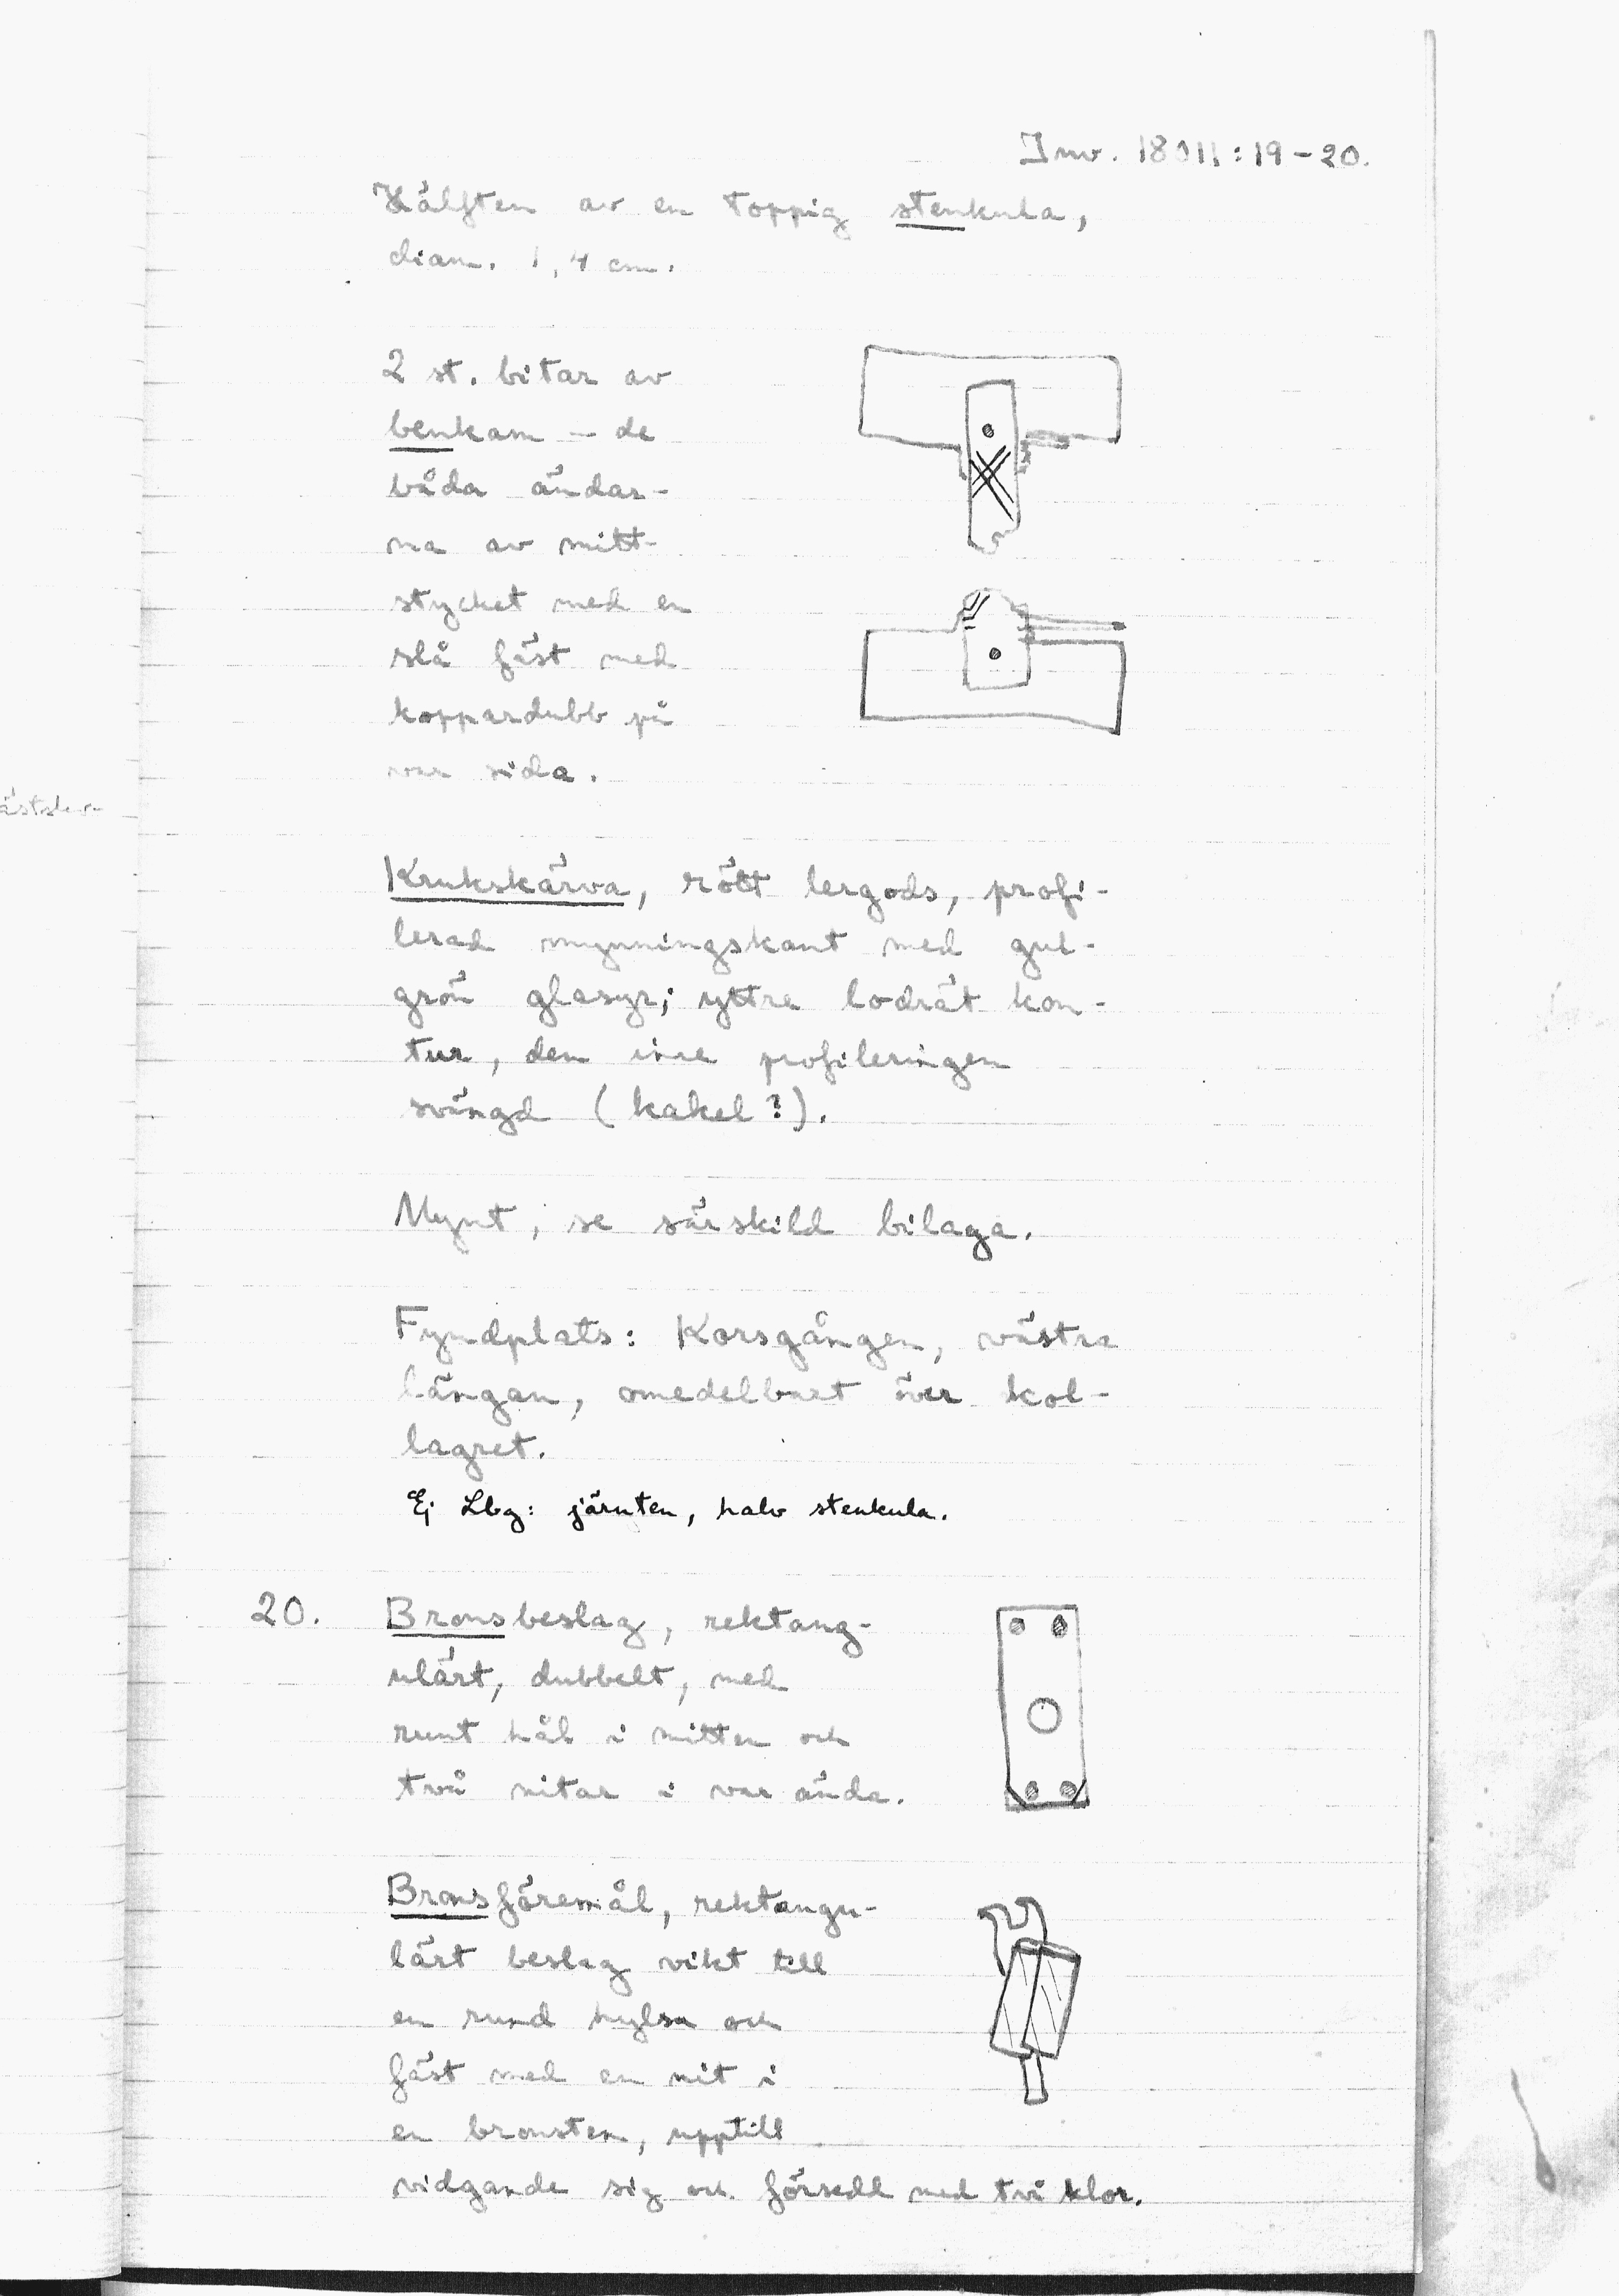 Inv. 18011:19-20.
Hälften av en toppig stenkula,
diam. 1,4 cm.
2 st. bitar av
benkam - de
båda ändar-
na av mitt-
stycket med en
slå fäst med
koppardubb på
var sida.
Krukskärva, rött lergods, profi-
lerad mynningskant med gul-
grön glasyr; yttre lodrät kon-
tur, den inre profileringen
svängd (kakel?).
Mynt, se särskild bilaga.
Fyndplats: Korsgången, västra
längan, omedelbart över kol-
lagret.
Ej Lbg: järnten, halv stenkula.
20. Bronsbeslag, rektang-
ulärt, dubbelt, med
runt hål i mitten och
två nitar i var ända.
Bronsföremål, rektangu-
lärt beslag vikt till
en rund hylsa och
fäst med en nit i
en bronsten, upptill
vidgande sig och försedd med två klor.